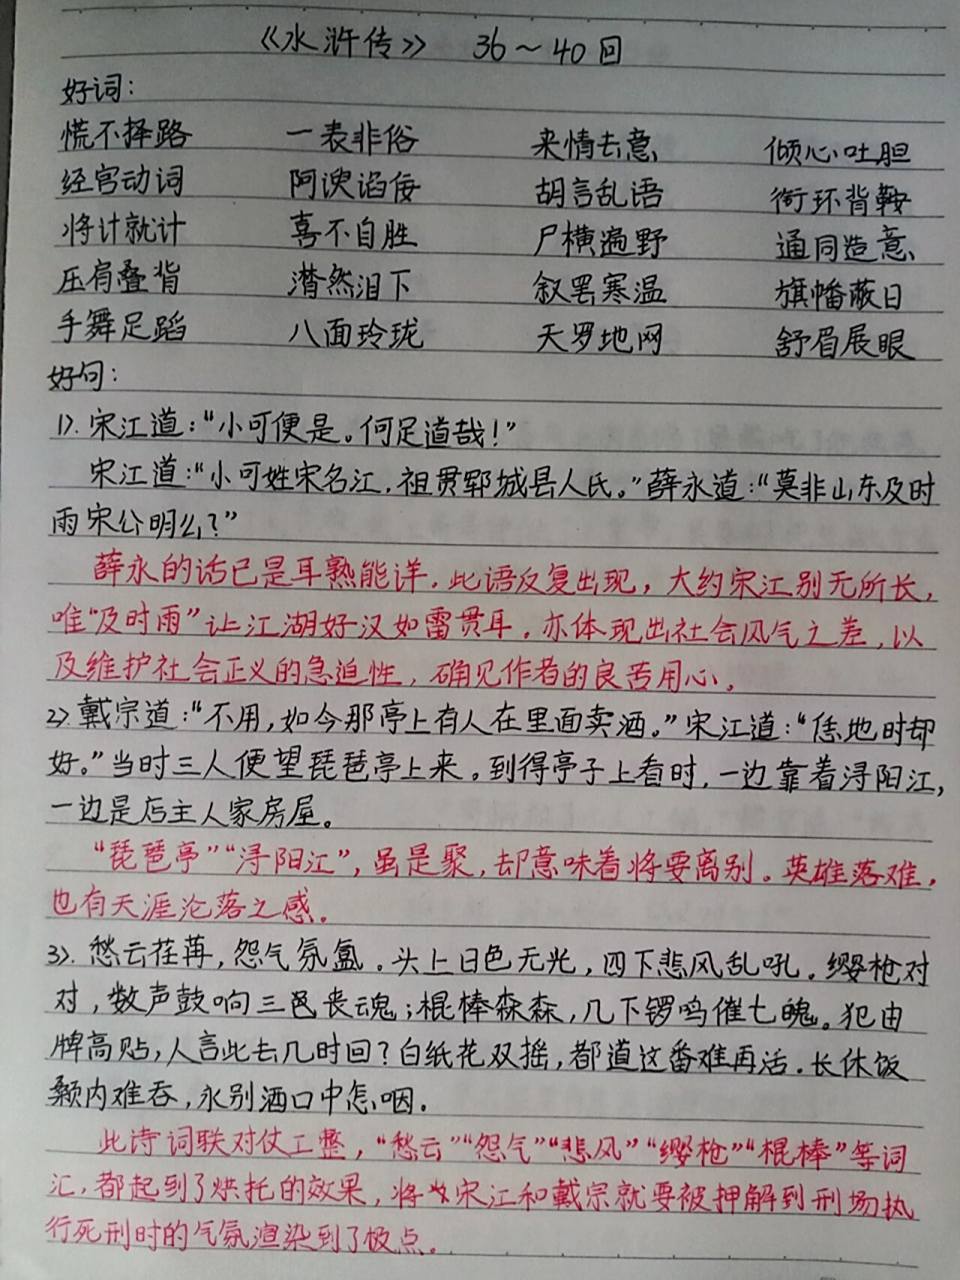 《水浒传》 36～40回
好词：
慌不择路 一表非俗 来情去意 倾心吐胆
经官动词 阿谀谄佞 胡言乱语 衔环背鞍
将计就计 喜不自胜 尸横遍野 通同造意
压肩叠背 潸然泪下 叙罢寒温 旗幡蔽日
手舞足蹈 八面玲珑 天罗地网 舒眉展眼
好句：
1）.宋江道：“小可便是。何足道哉！”
宋江道：“小可姓宋名江，祖贯郓城县人氏。”薛永道：“莫非山东及时
雨宋公明么？”
薛永的话已是耳熟能详，此语反复出现，大约宋江别无所长，
唯“及时雨”让江湖好汉如雷贯耳。亦体现出社会风气之差，以
及维护社会正义的急迫性，确见作者的良苦用心。
2）.戴宗道：“不用，如今那亭上有人在里面卖酒。”宋江道：“恁地时却
好。”当时三人便望琵琶亭上来。到得亭子上看时，一边靠着浔阳江，
一边是店主人家房屋。
“琵琶亭”“浔阳江”，虽是聚，却意味着将要离别。英雄落难，
也有天涯沦落之感。
3）.愁云荏苒，怨气氛氲。头上日色无光，四下悲风乱吼。缨枪对
对，数声鼓响三邑丧魂；棍棒森森，几下锣鸣催七魄。犯由
牌高贴，人言此去几时回？白纸花双摇，都道这番难再活。长休饭
颡内难吞，永别酒口中怎咽。
此诗词联对仗工整，“愁云”“怨气”“悲风”“缨枪”“棍棒”等词
汇，都起到了烘托的效果，将宋江和戴宗就要被押解到刑场执
行死刑时的气氛渲染到了极点。